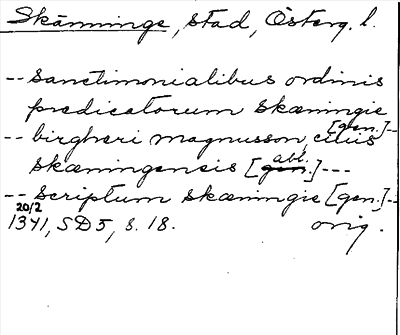 Skänninge, stad, Österg. l.
-- sanctimonialibus ordinis
predicatorum skæningie
[gen.]--
-- birgheri magnusson, ciuis
skæningensis [gen. abl.]---
-- scriptum skæningie [gen.]--
20/2
1341, SD5, s. 18. orig.